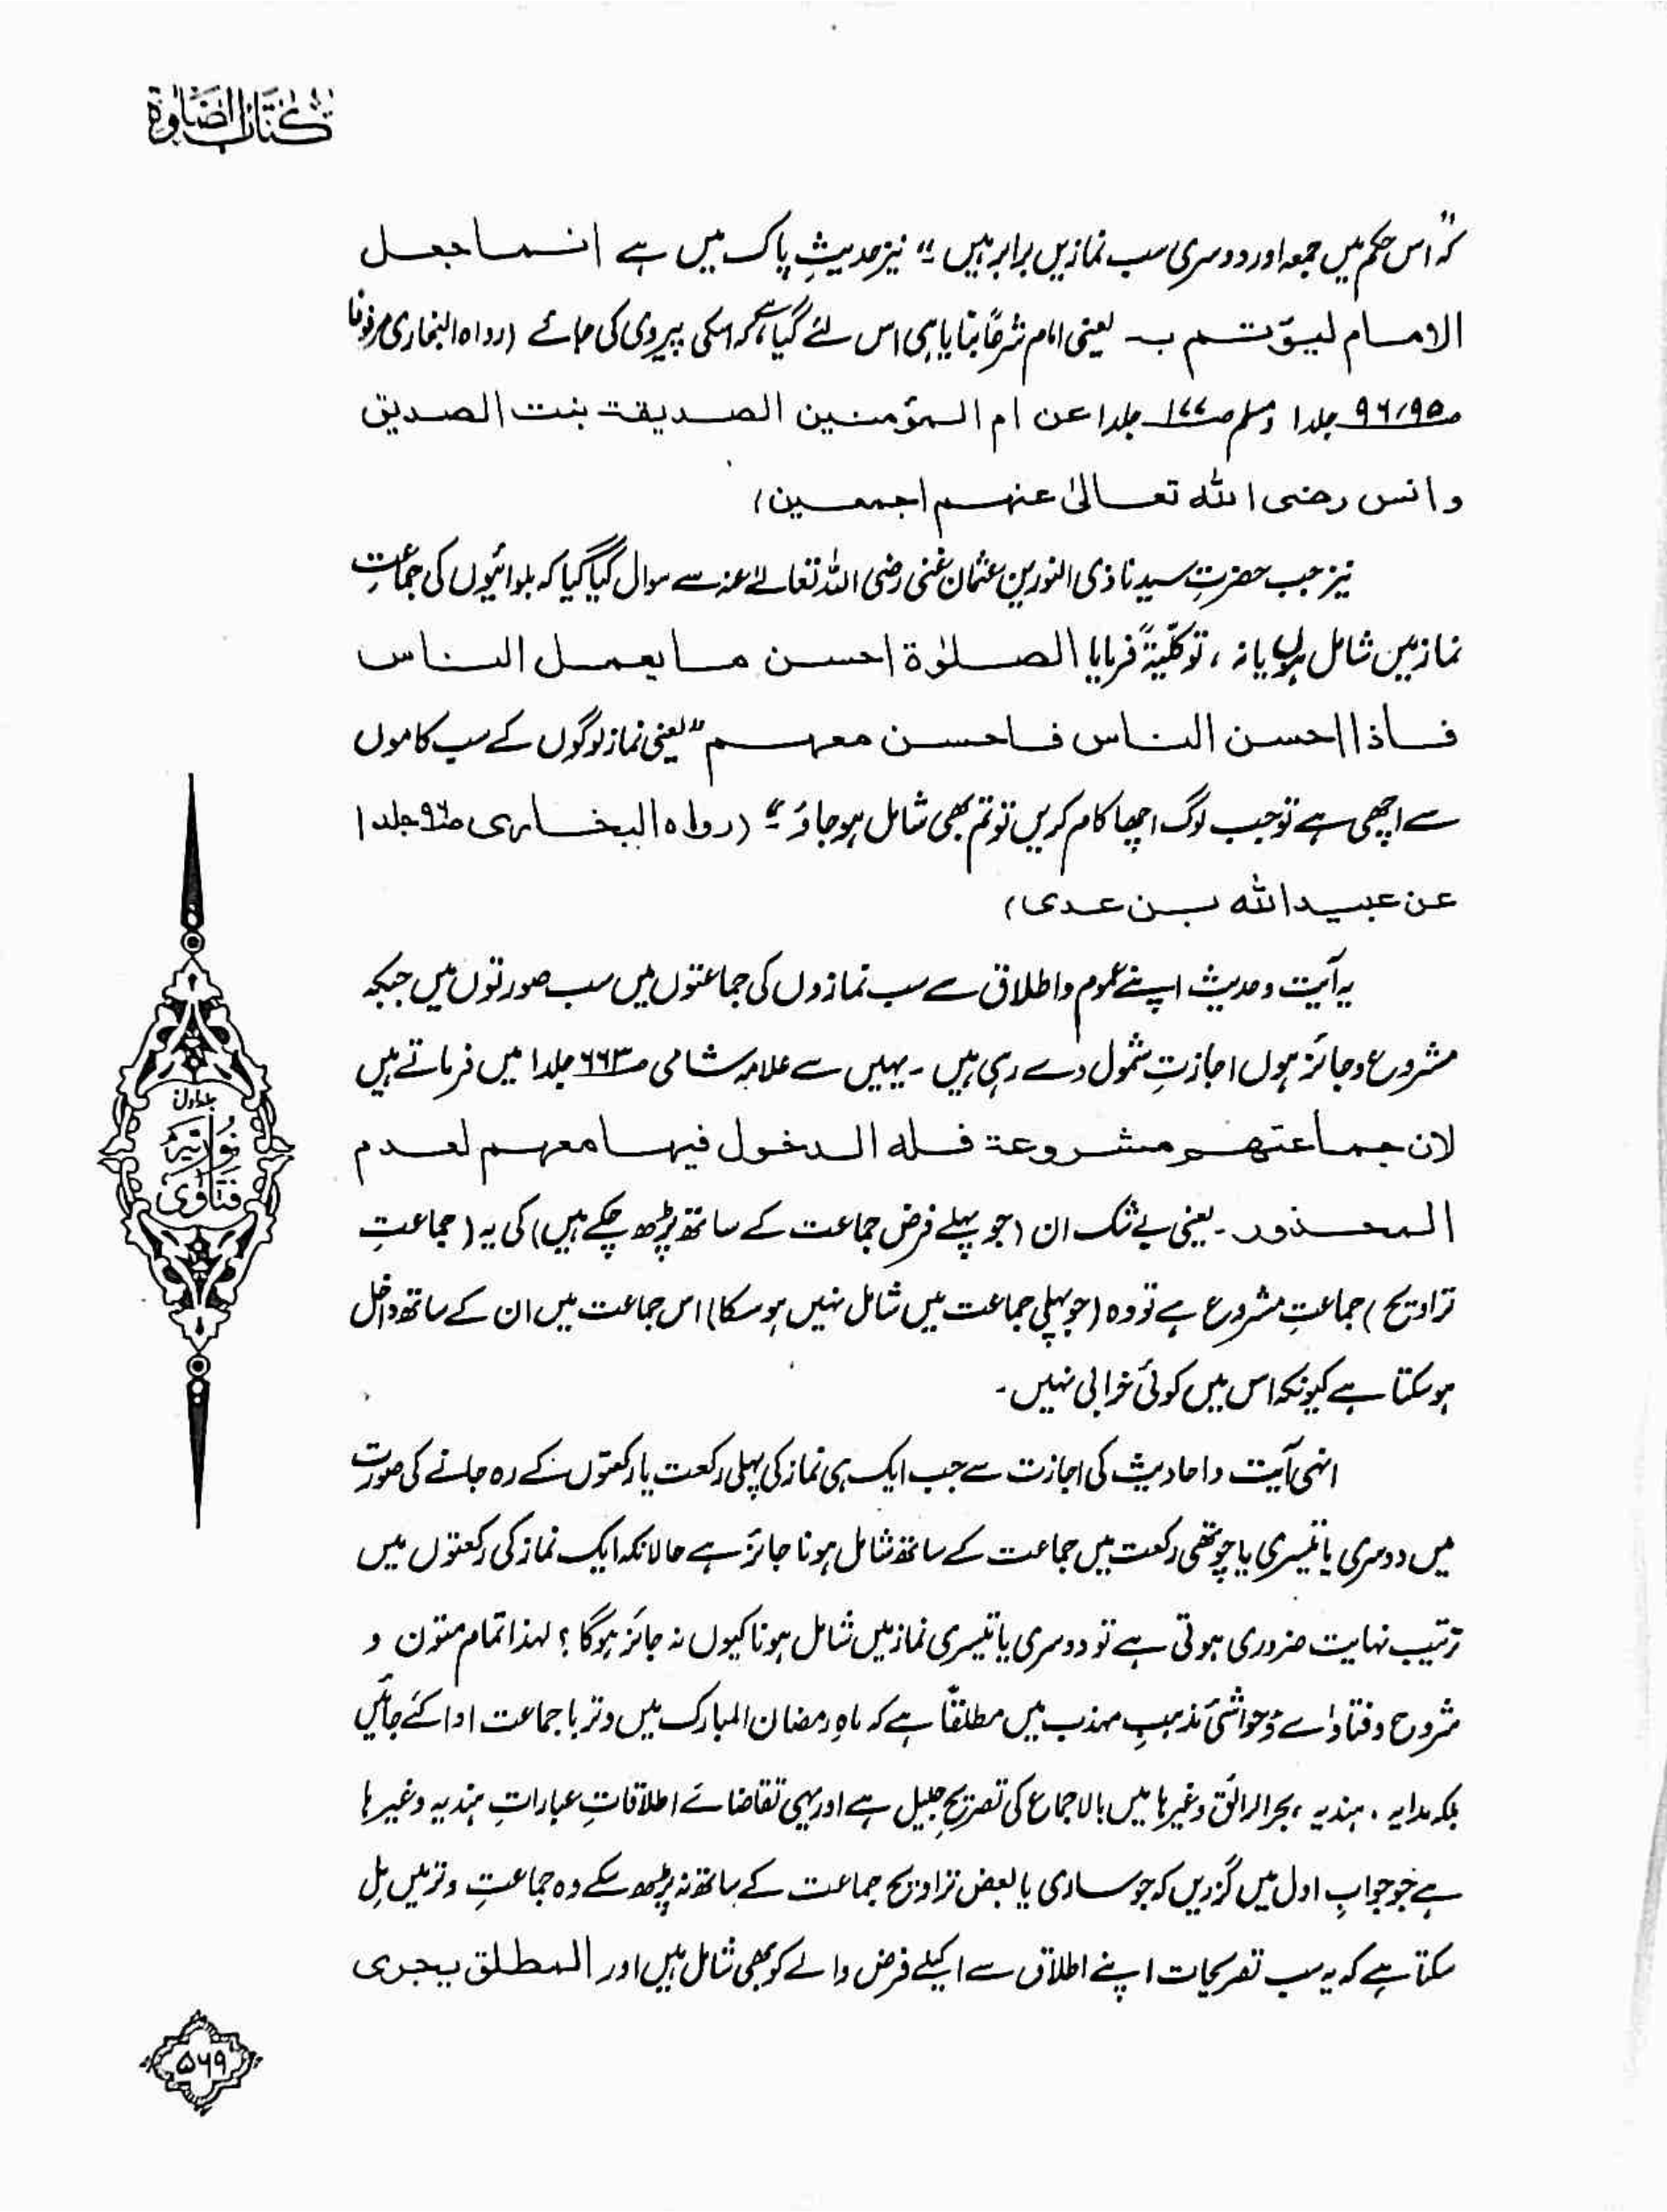 کتاب الصلوٰۃ
کہ "اس حکم میں جمعہ اور دوسری سب نمازیں برابر ہیں"۔ نیز حدیثِ پاک میں ہے انما جعل
الامام لیؤتم بہ یعنی امام شرعًا بنایا ہی اس لئے گیا ہے کہ اسکی پیروی کی جائے (رواہ البخاری مرفوعًا
ص۹۶،۹۵ جلد ۱ ومسلم ص۱۷۷ جلد ۱ عن ام المؤمنین الصدیقۃ بنت الصدیق
و انس رضی اللہ تعالیٰ عنہم اجمعین)
نیز جب حضرتِ سیدنا ذی النورین عثمان غنی رضی اللہ تعالےٰ عنہ سے سوال کیا گیا کہ بلوائیوں کی جماعتِ
نماز میں شامل ہوں یا نہ، تو کلّیۃً فرمایا الصلوٰۃ احسن ما یعمل الناس
فاذا احسن الناس فاحسن معہم "یعنی نماز لوگوں کے سب کاموں
سے اچھی ہے تو جب لوگ اچھا کام کریں تو تم بھی شامل ہو جاؤ"۔ (رواہ البخاری ص۹۶ جلد ۱
عن عبید اللہ بن عدی)
یہ آیت و حدیث اپنے عموم و اطلاق سے سب نمازوں کی جماعتوں میں سب صورتوں میں جبکہ
مشروع و جائز ہوں اجازتِ شمول دے رہی ہیں۔ یہیں سے علامہ شامی ص۶۶۳ جلد ۱ میں فرماتے ہیں
لان جماعتھم مشروعۃ فلہ الدخول فیہا معہم لعدم
المحذور۔ یعنی بے شک ان (جو پہلے فرض جماعت کے ساتھ پڑھ چکے ہیں) کی یہ (جماعتِ
تراویح) جماعتِ مشروع ہے تو وہ (جو پہلی جماعت میں شامل نہیں ہو سکا) اس جماعت میں ان کے ساتھ داخل
ہو سکتا ہے کیونکہ اس میں کوئی خرابی نہیں۔
انہی آیت و احادیث کی اجازت سے جب ایک ہی نماز کی پہلی رکعت یا رکعتوں کے رہ جانے کی صورت
میں دوسری یا تیسری یا چوتھی رکعت میں جماعت کے ساتھ شامل ہونا جائز ہے حالانکہ ایک نماز کی رکعتوں میں
ترتیب نہایت ضروری ہوتی ہے تو دوسری یا تیسری نماز میں شامل ہونا کیوں نہ جائز ہوگا؟ لہذا تمام متون و
شروح و فتاوٰے و حواشئ مذہبِ مہذب میں مطلقًا ہے کہ ماہِ رمضان المبارک میں وتر با جماعت ادا کئے جائیں
بلکہ ہدایہ، ہندیہ، بحر الرائق وغیرہا میں بالاجماع کی تصریحِ جلیل ہے اور یہی تقاضائے اطلاقاتِ عباراتِ ہندیہ وغیرہا
ہے جو جوابِ اول میں گزریں کہ جو ساری یا بعض تراویح جماعت کے ساتھ نہ پڑھ سکے وہ جماعتِ وتر میں مل
سکتا ہے کہ یہ سب تصریحات اپنے اطلاق سے اکیلے فرض والے کو بھی شامل ہیں اور المطلق یجری
جلد اول
فتاوٰی نوریہ
۵۶۹